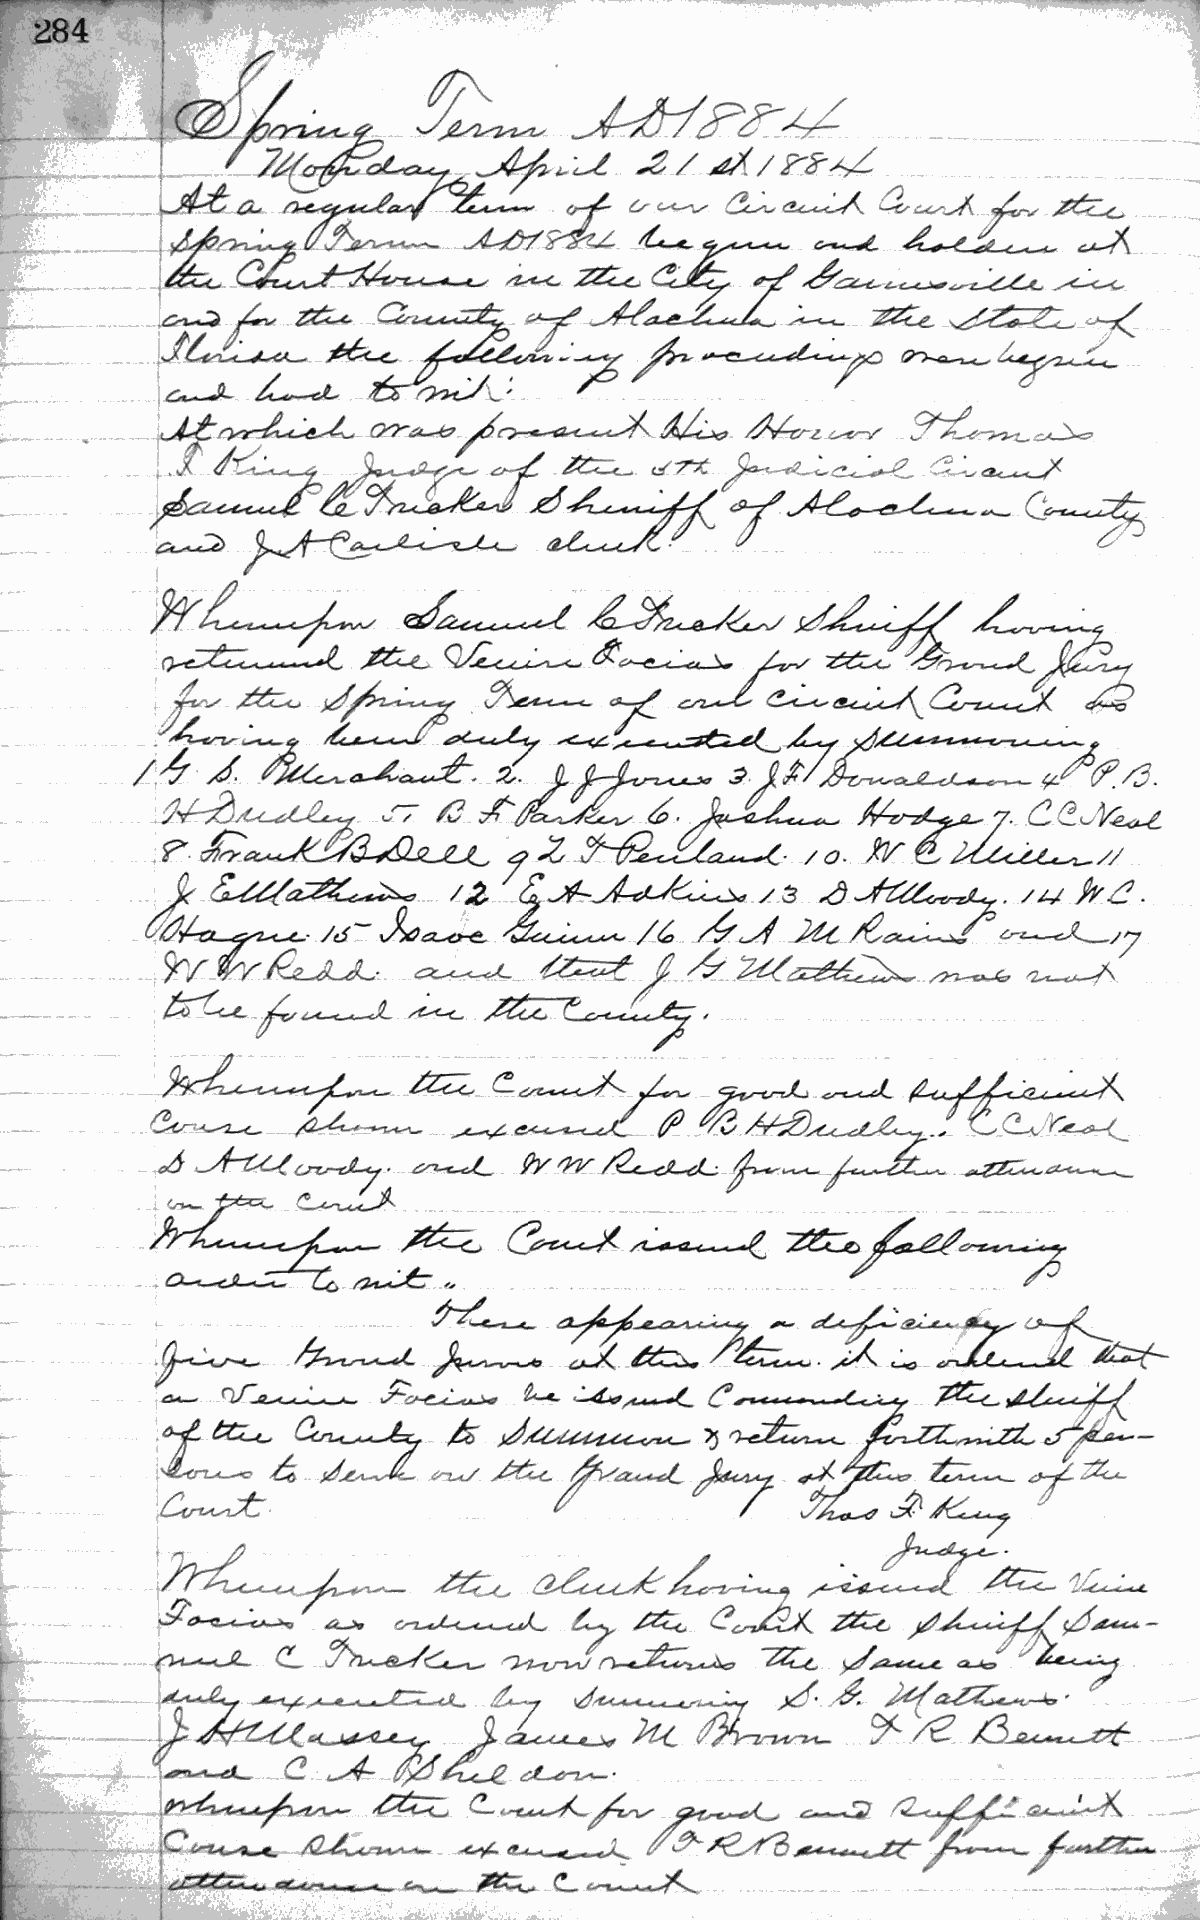 284
Spring Term AD 1884
Monday April 21st 1884
At a regular term of our Circuit Court for the
Spring Term AD 1884 begun and holden at
the Court House in the City of Gainesville in
and for the County of Alachua in the State of
Florida the following proceedings were begun
and had to wit:
At which was present His Honor Thomas
F King Judge of the 5th Judicial Circuit
Samuel C Tucker Sheriff of Alachua County
and J A Carlisle clerk.
Whereupon Samuel C Tucker Sheriff having
returned the Venire Facias for the Grand Jury
for the Spring Term of our Circuit Court as
having been duly executed by summoning
1 G S. Merchant. 2. J J Jones 3. J F Donaldson 4 P. B.
H Dudley 5. B F Parker 6. Joshua Hodge 7. C C Neal
8. Frank B Dell 9 L T Penland. 10. W C Miller 11
J E Mathews 12 E A Adkins 13 D A Moody. 14 W. C.
Hague. 15 Isaac Guinn 16 G A M Rains and 17
W W Redd. and that J G Mathews was not
to be found in the County.
Whereupon the Court for good and sufficient
Couse shown excused P B H Dudley. C C Neal
D A Moody. and W W Redd. from further attendance
on the Court
Whereupon the Court issued the following
order to wit "
There appearing a deficiency of
five Grand Jurors at this term. it is ordered that
a Venire Facias be issued Commanding the sheriff
of the County to Summon & return forthwith 5 per-
sons to serve on the Grand Jury at this term of the
Court.
Thos F. King
Judge.
Whereupon the clerk having issued the Venire
Facias as ordered by the Court the sheriff Sam-
uel C Tucker now returns the same as being
duly executed by summoning S. G. Mathews.
J H Massey James M Brown F R Bennett
and C A Sheldon.
Whereupon the Court for good and sufficient
Couse shown excused F R Bennett from further
attendance on the Court